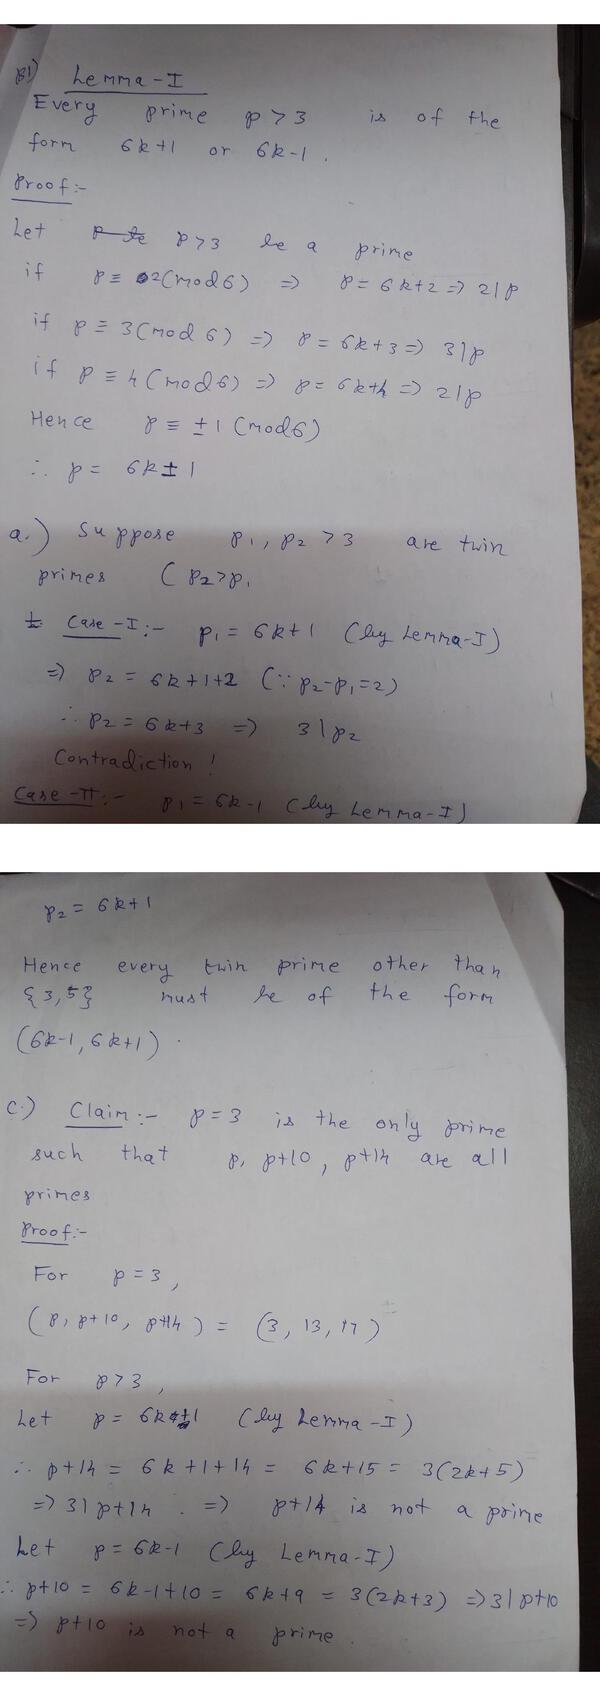 B1) Lemma-I
Every prime p > 3 is of the
form 6k+1 or 6k-1.
Proof:-
Let p>3 be a prime
if p ≡ 2(mod 6) => p = 6k+2 => 2|p
if p ≡ 3(mod 6) => p = 6k+3 => 3|p
if p ≡ 4(mod 6) => p = 6k+4 => 2|p
Hence p ≡ ±1 (mod 6)
∴ p = 6k±1
a.) Suppose p1, p2 > 3 are twin
primes (p2>p1
Case-I:- p1 = 6k+1 (by Lemma-I)
=> p2 = 6k+1+2 (∵ p2-p1=2)
∴ p2 = 6k+3 => 3|p2
Contradiction!
Case-II:- p1 = 6k-1 (by Lemma-I)
p2 = 6k+1
Hence every twin prime other than
{3,5} must be of the form
(6k-1, 6k+1).
C.) Claim:- p=3 is the only prime
such that p, p+10, p+14 are all
primes
Proof:-
For p=3,
(p, p+10, p+14) = (3, 13, 17)
For p>3,
Let p = 6k+1 (by Lemma-I)
∴ p+14 = 6k+1+14 = 6k+15 = 3(2k+5)
=> 3|p+14. => p+14 is not a prime
Let p=6k-1 (by Lemma-I)
∴ p+10 = 6k-1+10 = 6k+9 = 3(2k+3) => 3|p+10
=> p+10 is not a prime.